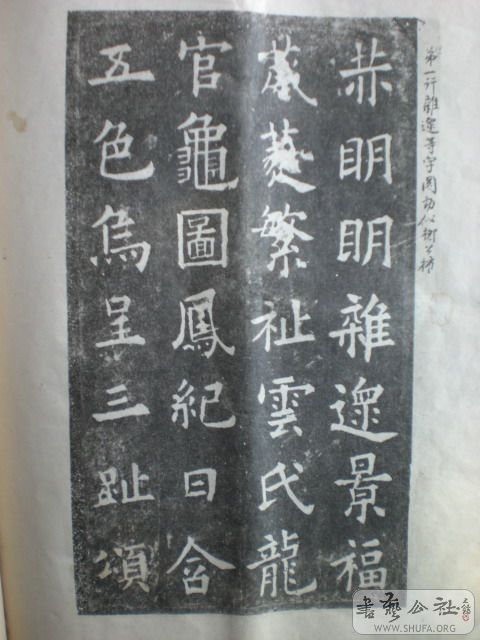 第一行雜遝等字圓勁似
赫明明雜遝景福
葳蕤繁祉雲氏龍
官龜圖鳳紀日含
五色烏呈三趾頌
書藝公社
WWW.SHUFA.ORG